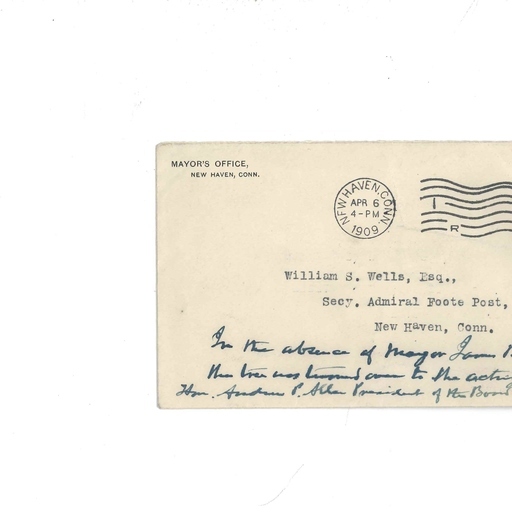 MAYOR'S OFFICE,
NEW HAVEN, CONN.
NEW HAVEN, CONN.
APR 6
4-PM
1909
I
R
William S. Wells, Esq.,
Secy. Admiral Foote Post,
New Haven, Conn.
In the absence of Mayor James
the tree was turned over to the
Hon. Andrew P. Allen President of the Board